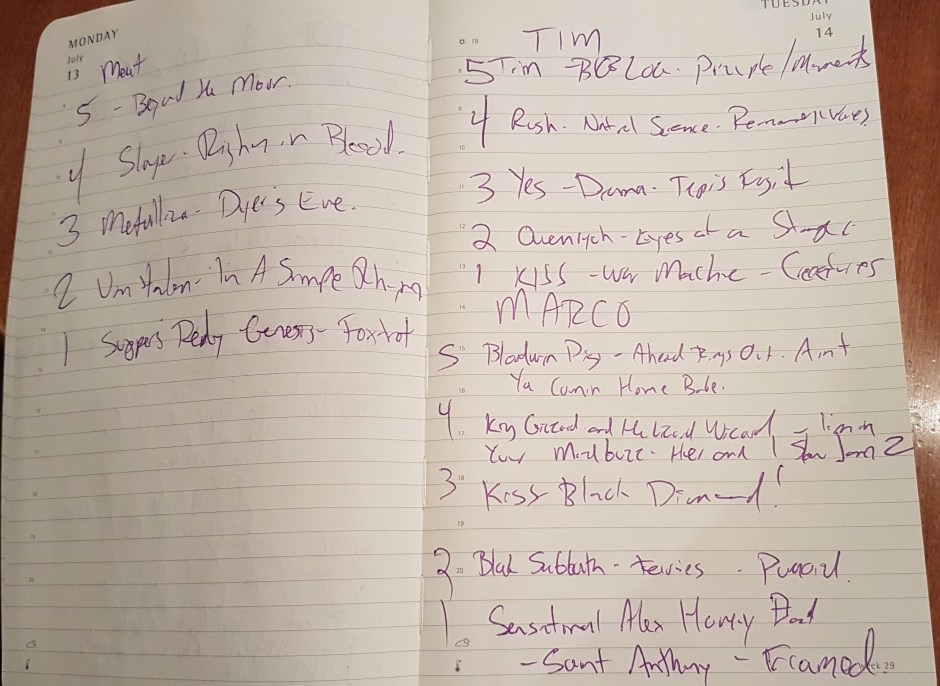 MONDAY
July
13
Meat
5 - Beyond the Moor.
4 Slayer - Righen in Blood.
3 Metallica - Dyer's Eve.
2 Van Halen - In A Simple Rhyme
1 Supper's Ready Genesis - Foxtrot
TUESDAY
July
14
FR
TIM
5 Tim - Principle/Moments
4 Rush - Natural Science - Permanent Waves
3 Yes - Drama -
2 - Eyes of a Stranger
1 KISS - War Machine - Creatures
MARCO
5 Blodwyn Pig - Ahead Rings Out. Aint
Ya Comin Home Babe.
4 King Gizzard and the Lizard Wizard - I'm in
Your Mind
3 Kiss Black Diamond!
2 Black Sabbath - Fairies -
1 Sensational Alex Harvey Band
- Saint Anthony - Framed.
week 29